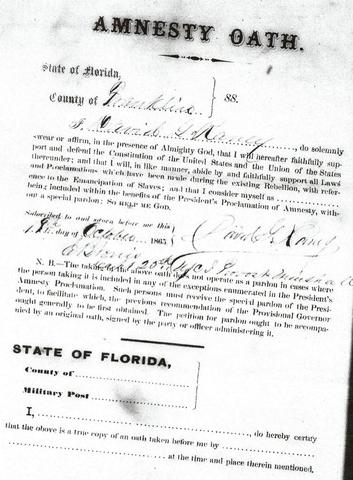 AMNESTY OATH.
State of Florida,
County of
SS.
I, David, do solemnly
swear or affirm, in the presence of Almighty God, that I will hereafter faithfully sup-
port and defend the Constitution of the United States and the Union of the States
thereunder; and that I will, in like manner, abide by and faithfully support all Laws
and Proclamations which have been made during the existing Rebellion, with refer-
ence to the Emancipation of Slaves; and that I consider myself as
being included within the benefits of the President's Proclamation of Amnesty, with-
out a special pardon: So HELP ME GOD.
Subscribed to and sworn before me this
18th day of October 1865
David
N. B.—The taking the above oath does not operate as a pardon in cases where
the person taking it is included in any of the exceptions enumerated in the President's
Amnesty Proclamation. Such persons must receive the special pardon of the Presi-
dent, to facilitate which, the previous recommendation of the Provisional Governor
ought generally to be first obtained. The petition for pardon ought to be accompa-
nied by an original oath, signed by the party or officer administering it.
STATE OF FLORIDA,
County of
Military Post
I, do hereby certify
that the above is a true copy of an oath taken before me by
at the time and place therein mentioned.